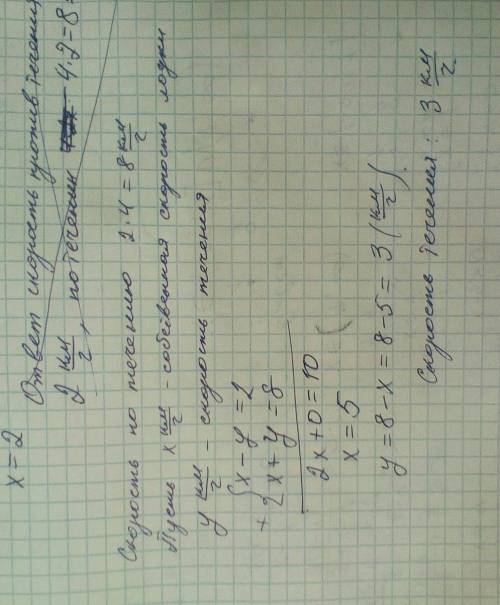 x = 2
Ответ скорость против течения
2 км/г, по течению 4·2=8
Скорость по течению 2·4 = 8 км/г
Пусть x км/г - собственная скорость лодки
y км/г - скорость течения
+ { x - y = 2
x + y = 8
2x + 0 = 10
x = 5
y = 8 - x = 8 - 5 = 3 (км/г).
Скорость течения: 3 км/г